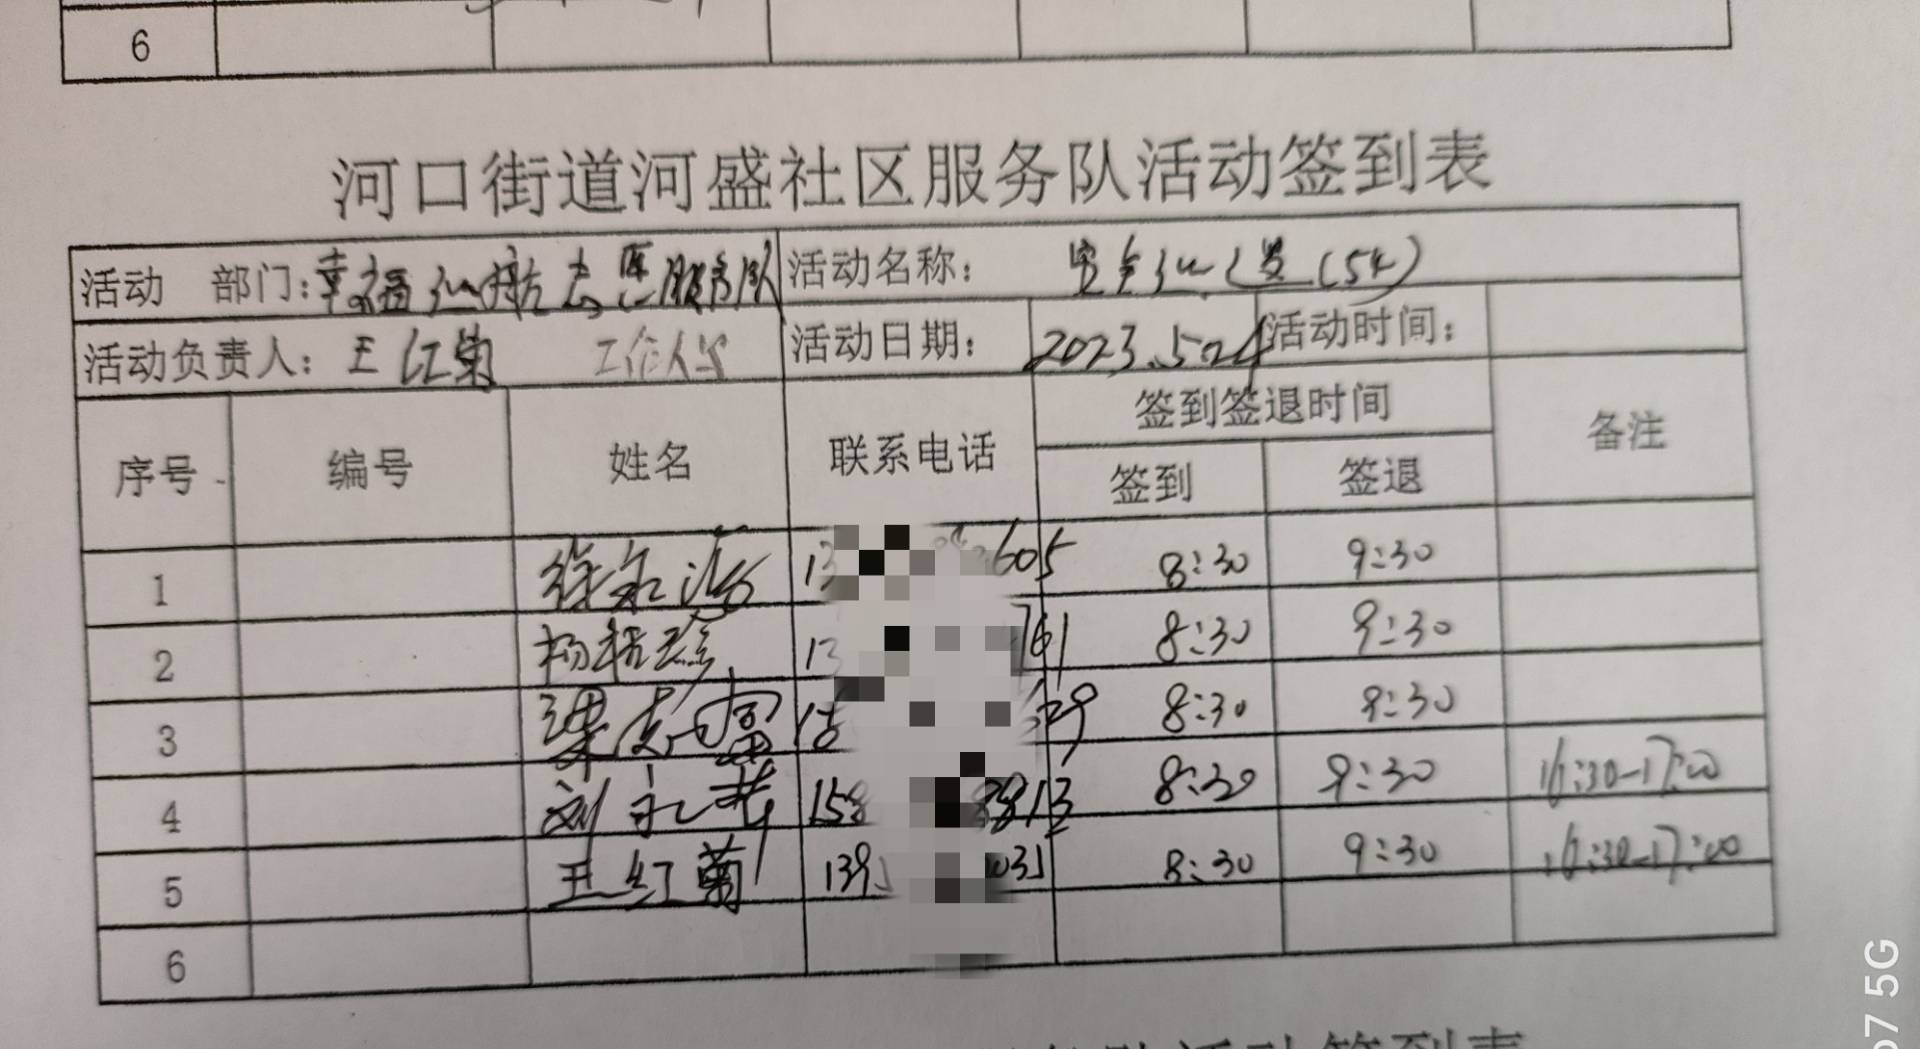 6
河口街道河盛社区服务队活动签到表
活动 部门: 幸福 航志愿服务队 活动名称: (5人)
活动负责人: 王红菊 工作人员 活动日期: 2023.5.24 活动时间:
序号 编号 姓名 联系电话 签到签退时间 备注
签到 签退
1 徐永 13 605 8:30 9:30
2 杨 13 761 8:30 9:30
3 梁 富 15 29 8:30 9:30
4 刘永 158 8913 8:30 9:30 16:30-17:00
5 王红菊 139 031 8:30 9:30 16:30-17:00
6
活动签到表
5G